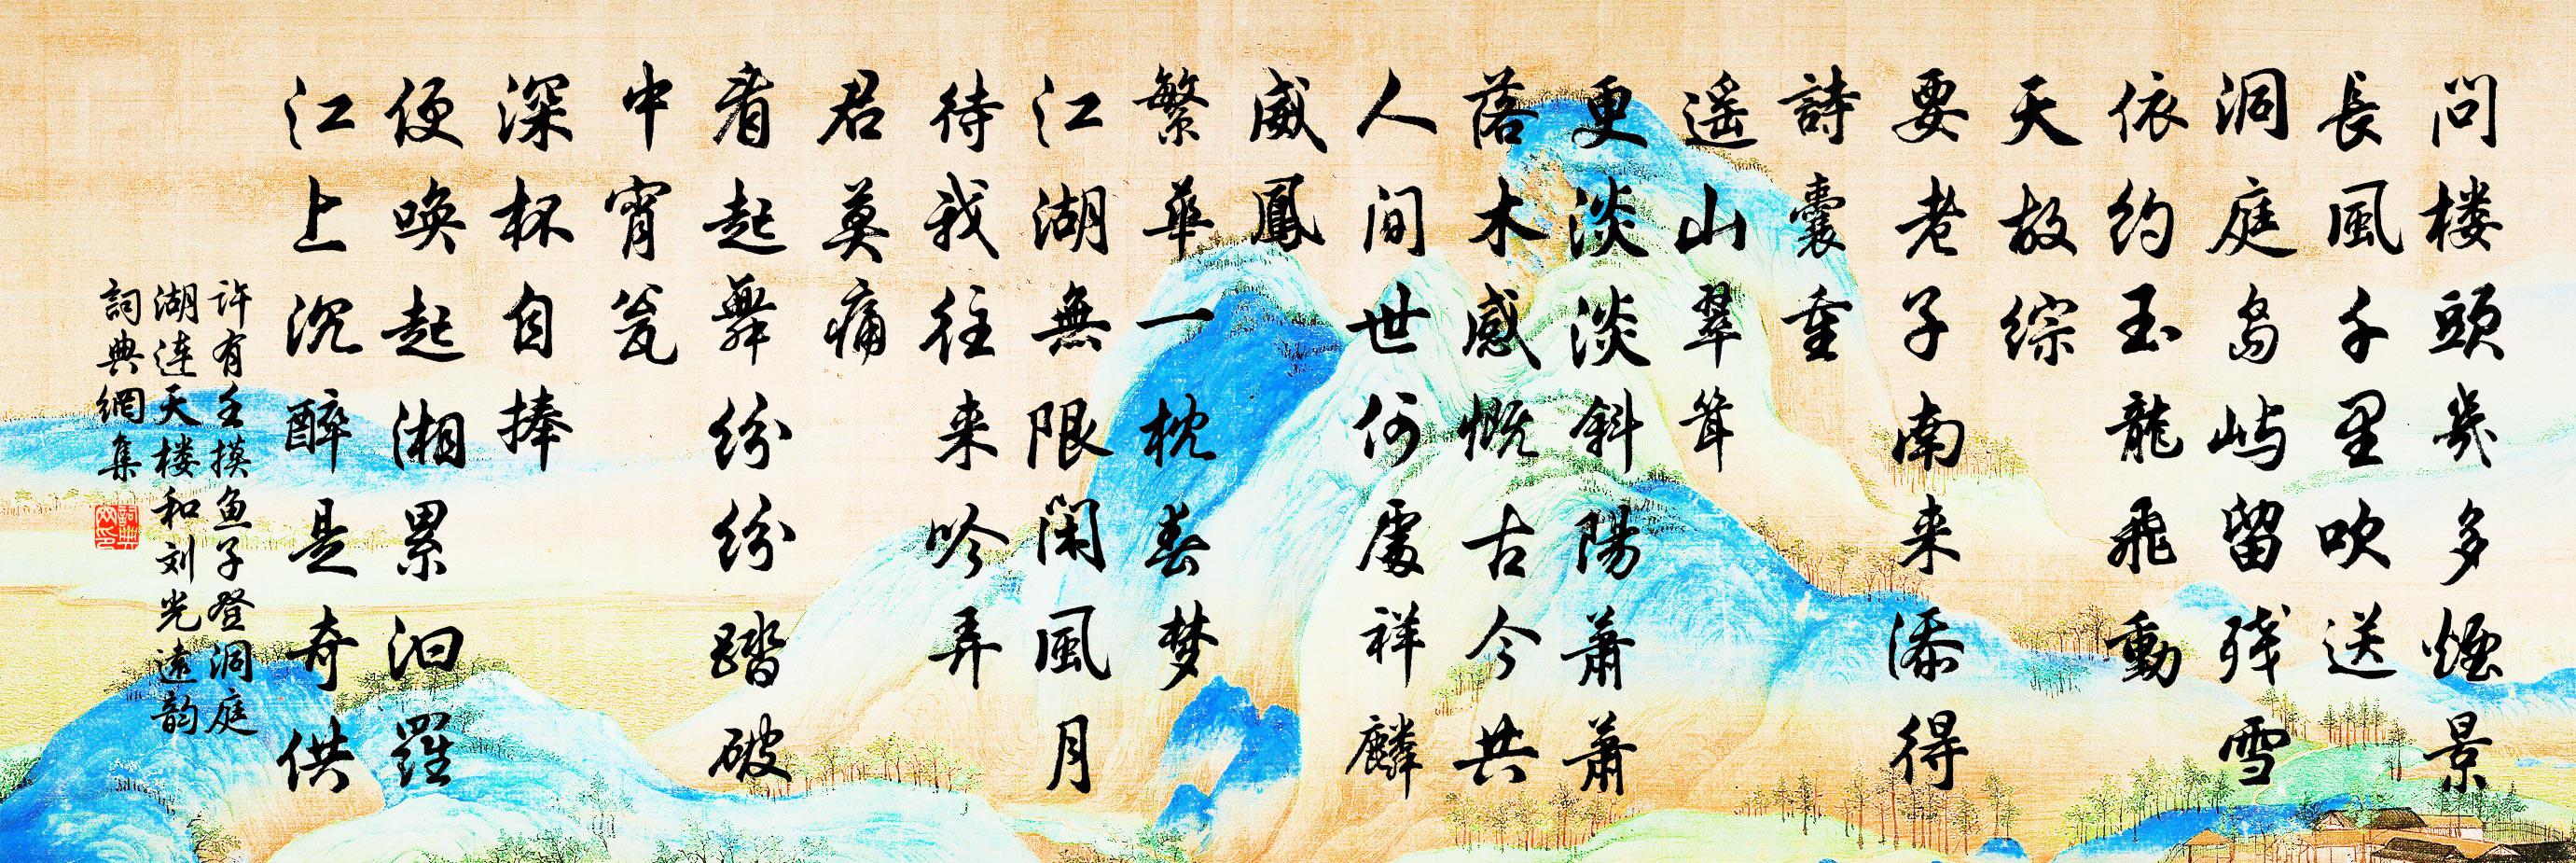 问楼頭幾多煙景
長風千里吹送
洞庭岛屿留残雪
依约玉龍飛動
天故综
要老子南来添得
詩囊重
遥山翠耸
更淡淡斜陽萧萧
落木感慨古今共
人间世何處祥麟
威鳳
繁華一枕春梦
江湖無限閑風月
待我往来吟弄
君莫痛
看起舞纷纷踏破
中宵瓮
深杯自捧
便唤起湘累汩羅
江上沉醉是奇供
许有壬摸鱼子登洞庭
湖连天楼和刘光远韵
詞典網集